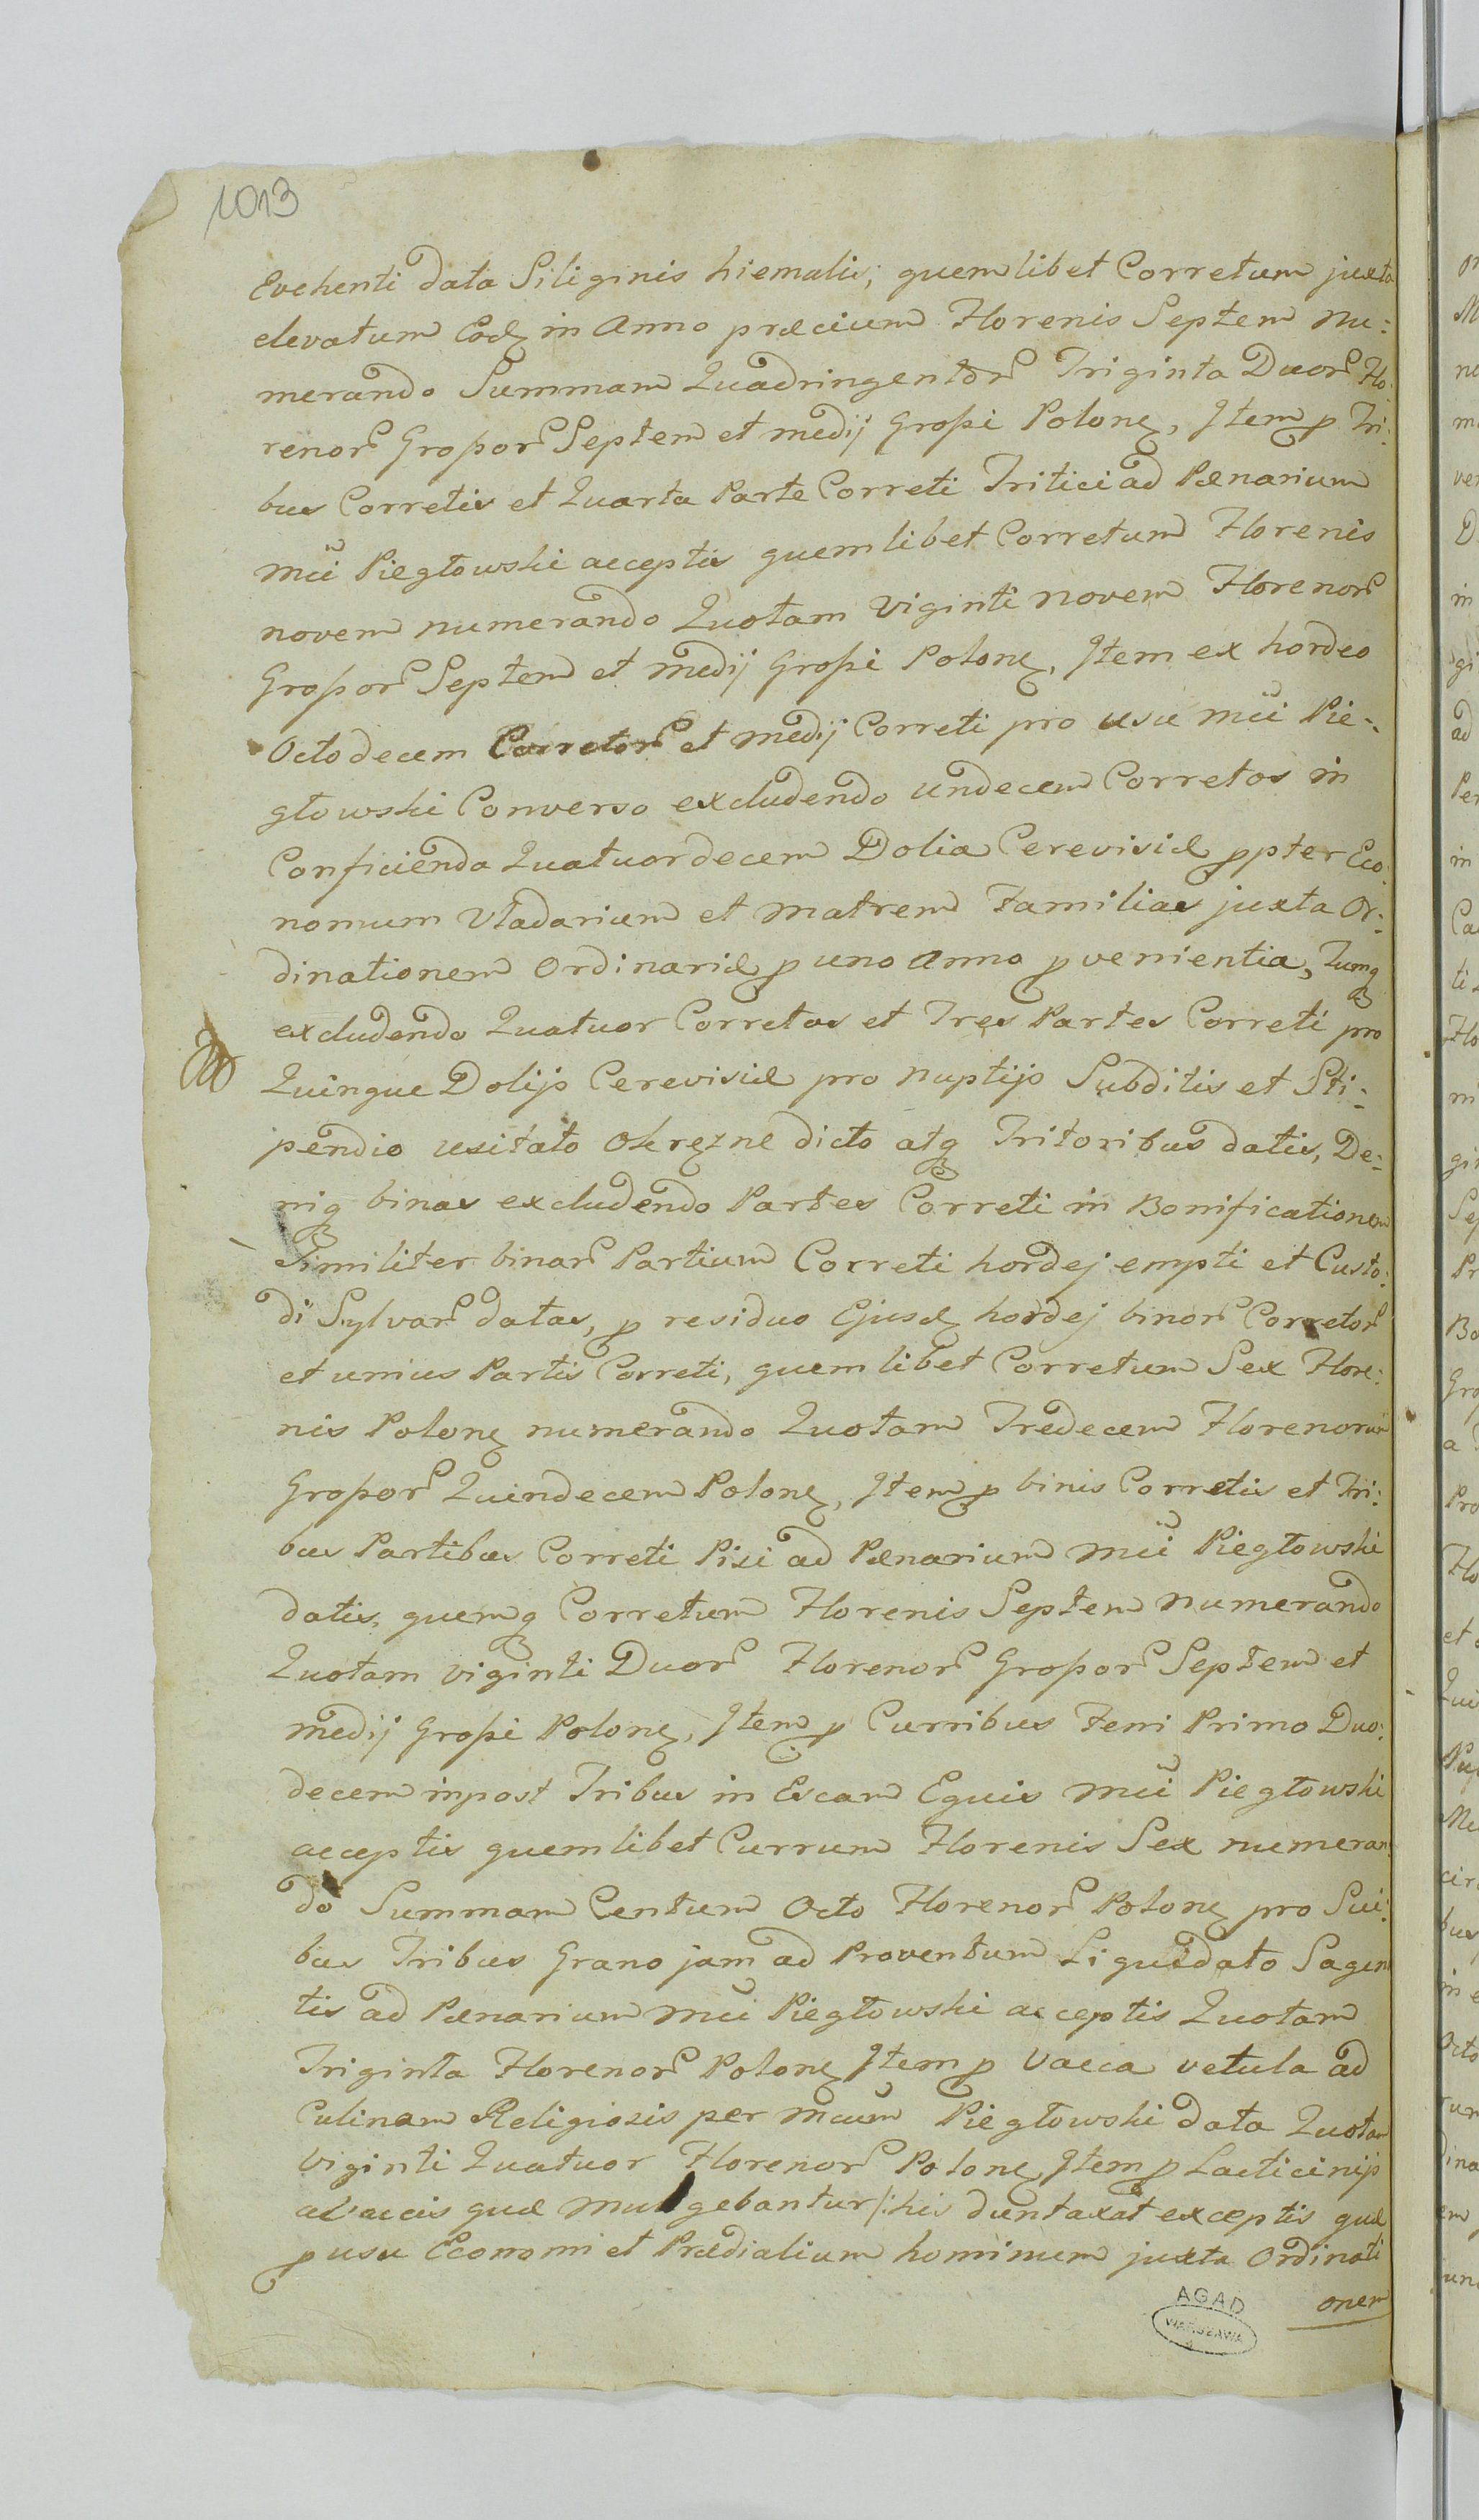 1013
Evehenti data Siliginis hiemalis; quemlibet Corretum juxta
elevatum Eod in Anno præcium Florenis Septem nu:
merando Summam Quadringentor Triginta Duor Flo:
renor Grossor Septem et medij Grossi Polon, Item p Tri:
bus Corretis et Quarta Parte Correti Tritici ad Pænarium
Mci Piegłowski acceptis quemlibet Corretum Florenis
novem numerando Quotam Viginti novem Florenor
Grossor Septem et medij Grossi Polon, Item ex hordeo
Octodecem Corretor et medij Correti pro usu Mci Pie:
głowski Converso excludendo undecem Corretos in
Conficienda Quatuordecem Dolia Cerevisiæ ppter Eco:
nomum Vladarium et Matrem Familias juxta Or:
dinationem Ordinariæ p uno Anno pvenientia, Tumq
excludendo Quatuor Corretos et Tres Partes Correti pro
Quinque Dolijs Cerevisiæ pro nuptijs Subditis et Sti:
pendio usitato Okrężne dicto atq Tritoribus datis, De:
niq binas excludendo Partes Correti in Bonificationem
Similiter binar Partium Correti hordej empti et Custo:
di Sylvar datas, p residuo Ejusd hordej binor Corretor
et unius Partis Correti, quemlibet Corretum Sex Flore:
nis Polon numerando Quotam Tredecem Florenorum
Grossor Quindecem Polon, Item p binis Corretis et Tri:
bus Partibus Correti Pisi ad Pænarium Mci Piegłowski
datis, quemq Corretum Florenis Septem numerando
Quotam viginti Duor Florenor Grossor Septem et
medij Grossi Polon, Item p Curribus Feni Primo Duo:
decem inpost Tribus in Escam Equis Mci Piegłowski
acceptis quemlibet Currum Florenis Sex numeran:
do Summam Centum Octo Florenor Polon pro Sui:
bus Tribus Grano jam ad Proventum Liquidato Sagin
tis ad Pænarium Mci Piegłowski acceptis Quotam
Triginta Florenor Polon Item p Vacca vetula ad
Culinam Religiosis per Mcum Piegłowski data Quotam
viginti Quatuor Florenor Polon Item p Lacticinijs
a Vaccis quæ mulgebantur /: his duntaxat exceptis quæ
p usu Economi et Prædialium hominum juxta Ordinati
onem
AGAD
WARSZAWA